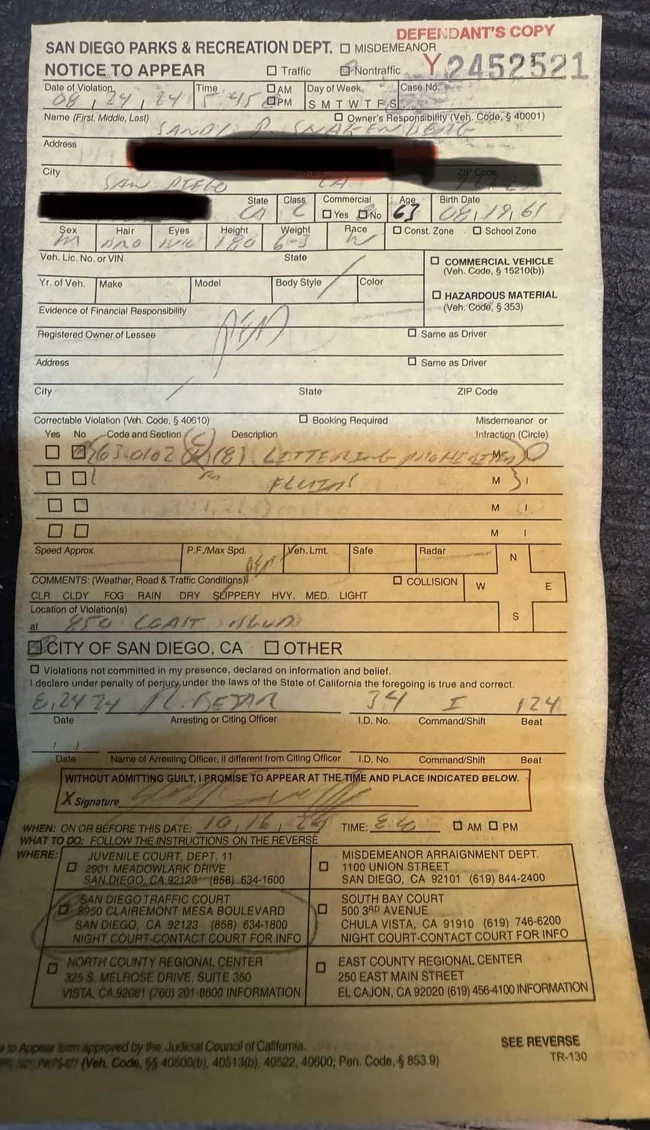 DEFENDANT'S COPY
SAN DIEGO PARKS & RECREATION DEPT. ☐ MISDEMEANOR
NOTICE TO APPEAR ☐ Traffic ☒ Nontraffic Y2452521
Date of Violation Time ☐ AM ☐ PM Day of Week Case No.
08, 24, 24 5:45 S M T W T F S
Name (First, Middle, Last) ☐ Owner's Responsibility (Veh. Code, § 40001)
SANDI
Address
City State ZIP Code
SAN DIEGO CA
State Class Commercial Age Birth Date
CA C ☐ Yes ☐ No 63 08, 19, 61
Sex Hair Eyes Height Weight Race ☐ Const. Zone ☐ School Zone
M BRO 180 6-3 W
Veh. Lic. No. or VIN State ☐ COMMERCIAL VEHICLE
(Veh. Code, § 15210(b))
Yr. of Veh. Make Model Body Style Color
☐ HAZARDOUS MATERIAL
(Veh. Code, § 353)
Evidence of Financial Responsibility
PED
Registered Owner of Lessee ☐ Same as Driver
Address ☐ Same as Driver
City State ZIP Code
Correctable Violation (Veh. Code, § 40610) ☐ Booking Required Misdemeanor or
Yes No Code and Section Description Infraction (Circle)
☐ ☒ 63.0102 (C) (8) LITTERING M I
☐ ☐ M I
☐ ☐ M I
☐ ☐ M I
Speed Approx. P.F./Max Spd. Veh. Lmt. Safe Radar N
COMMENTS: (Weather, Road & Traffic Conditions) ☐ COLLISION W E
CLR CLDY FOG RAIN DRY SLIPPERY HVY. MED. LIGHT
Location of Violation(s) S
at 850 COAST BLVD
☒ CITY OF SAN DIEGO, CA ☐ OTHER
☐ Violations not committed in my presence, declared on information and belief.
I declare under penalty of perjury under the laws of the State of California the foregoing is true and correct.
8, 24 24 R. BEJAR 34 I 124
Date Arresting or Citing Officer I.D. No. Command/Shift Beat
/ /
Date Name of Arresting Officer, if different from Citing Officer I.D. No. Command/Shift Beat
WITHOUT ADMITTING GUILT, I PROMISE TO APPEAR AT THE TIME AND PLACE INDICATED BELOW.
X Signature
WHEN: ON OR BEFORE THIS DATE: 10, 16, 24 TIME: ☐ AM ☐ PM
WHAT TO DO: FOLLOW THE INSTRUCTIONS ON THE REVERSE
WHERE: ☐ JUVENILE COURT, DEPT. 11
2901 MEADOWLARK DRIVE
SAN DIEGO, CA 92123 (858) 634-1600
☐ MISDEMEANOR ARRAIGNMENT DEPT.
1100 UNION STREET
SAN DIEGO, CA 92101 (619) 844-2400
☐ SAN DIEGO TRAFFIC COURT
8950 CLAIREMONT MESA BOULEVARD
SAN DIEGO, CA 92123 (858) 634-1800
NIGHT COURT-CONTACT COURT FOR INFO
☐ SOUTH BAY COURT
500 3RD AVENUE
CHULA VISTA, CA 91910 (619) 746-6200
NIGHT COURT-CONTACT COURT FOR INFO
☐ NORTH COUNTY REGIONAL CENTER
325 S. MELROSE DRIVE, SUITE 350
VISTA, CA 92081 (760) 201-8600 INFORMATION
☐ EAST COUNTY REGIONAL CENTER
250 EAST MAIN STREET
EL CAJON, CA 92020 (619) 456-4100 INFORMATION
to Appear form approved by the Judicial Council of California. SEE REVERSE
(Veh. Code, §§ 40500(b), 40513(b), 40522, 40600; Pen. Code, § 853.9) TR-130